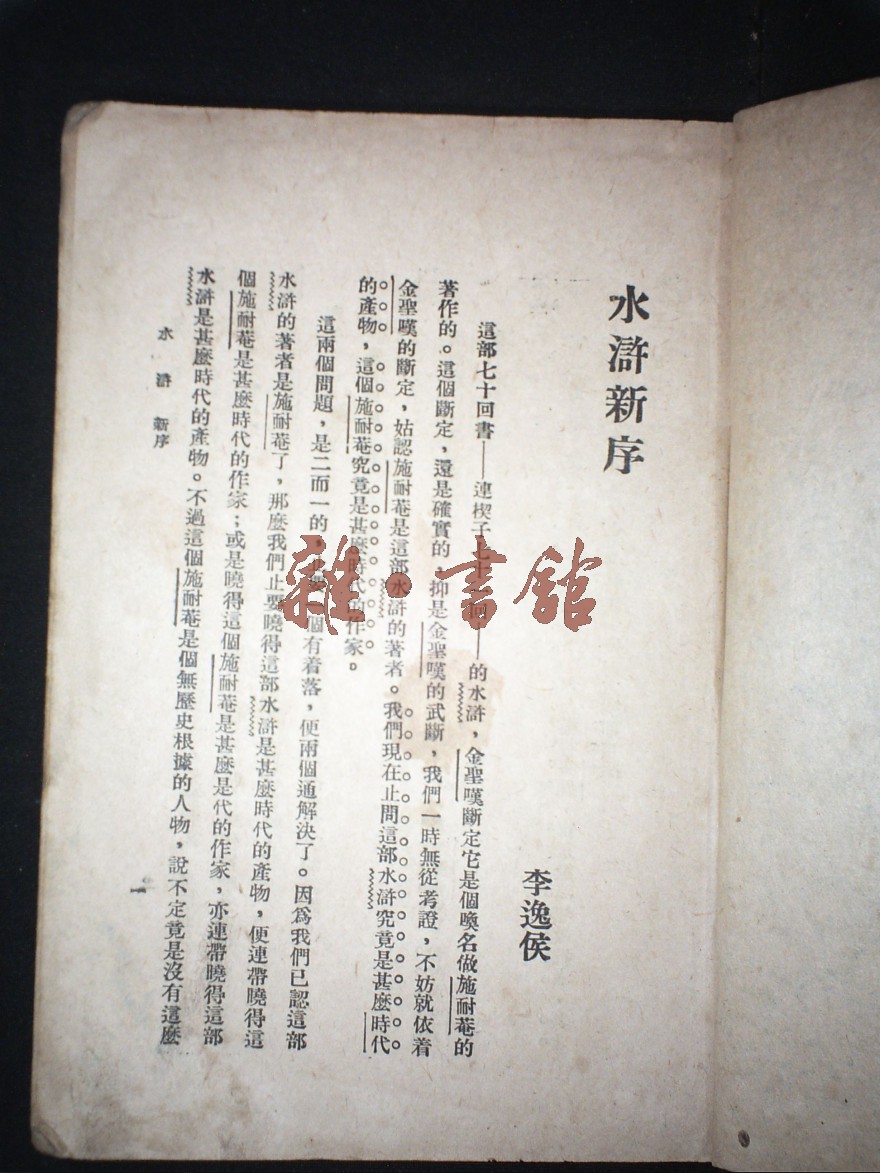 水滸新序
李逸侯
這部七十回書——連楔子七十一回——的水滸，金聖嘆斷定它是個喚名做施耐菴的
著作的。這個斷定，還是確實的，抑是金聖嘆的武斷，我們一時無從考證，不妨就依着
金聖嘆的斷定，姑認施耐菴是這部水滸的著者。我們現在止問這部水滸究竟是甚麼時代
的產物，這個施耐菴究竟是甚麼時代的作家。
這兩個問題，是二而一的，止要一個有着落，便兩個通解決了。因爲我們已認這部
水滸的著者是施耐菴了，那麼我們止要曉得這部水滸是甚麼時代的產物，便連帶曉得這
個施耐菴是甚麼時代的作家；或是曉得這個施耐菴是甚麼是代的作家，亦連帶曉得這部
水滸是甚麼時代的產物。不過這個施耐菴是個無歷史根據的人物，說不定竟是沒有這麼
水滸 新序
一
雜·書館